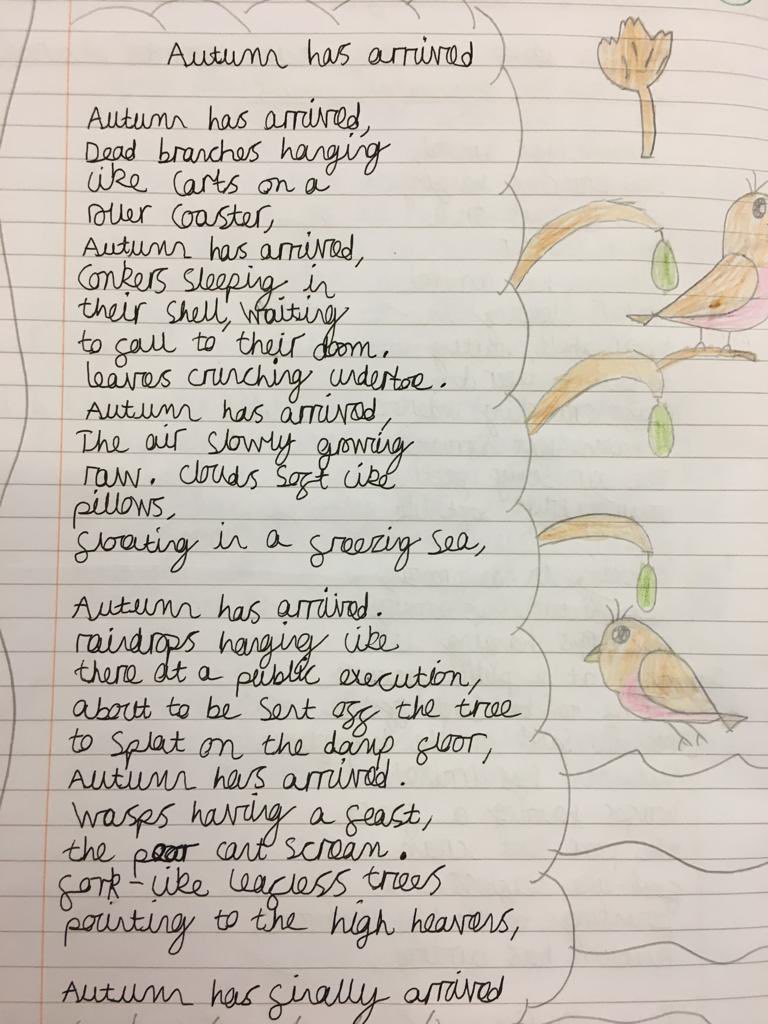 Autumn has arrived
Autumn has arrived,
Dead branches hanging
like Carts on a
roller Coaster,
Autumn has arrived,
Conkers sleeping in
their shell, waiting
to fall to their doom.
leaves crunching undertoe.
Autumn has arrived,
The air slowly growing
raw. Clouds soft like
pillows,
floating in a freezig sea,
Autumn has arriived.
raindrops hanging like
there at a public execution,
aboutt to be sent off the tree
to splat on the damp floor,
Autumn has arrived.
Wasps having a feast,
the pear cant scream.
fork-like leafless trees
pointing to the high heavens,
Autumn has finally arrived